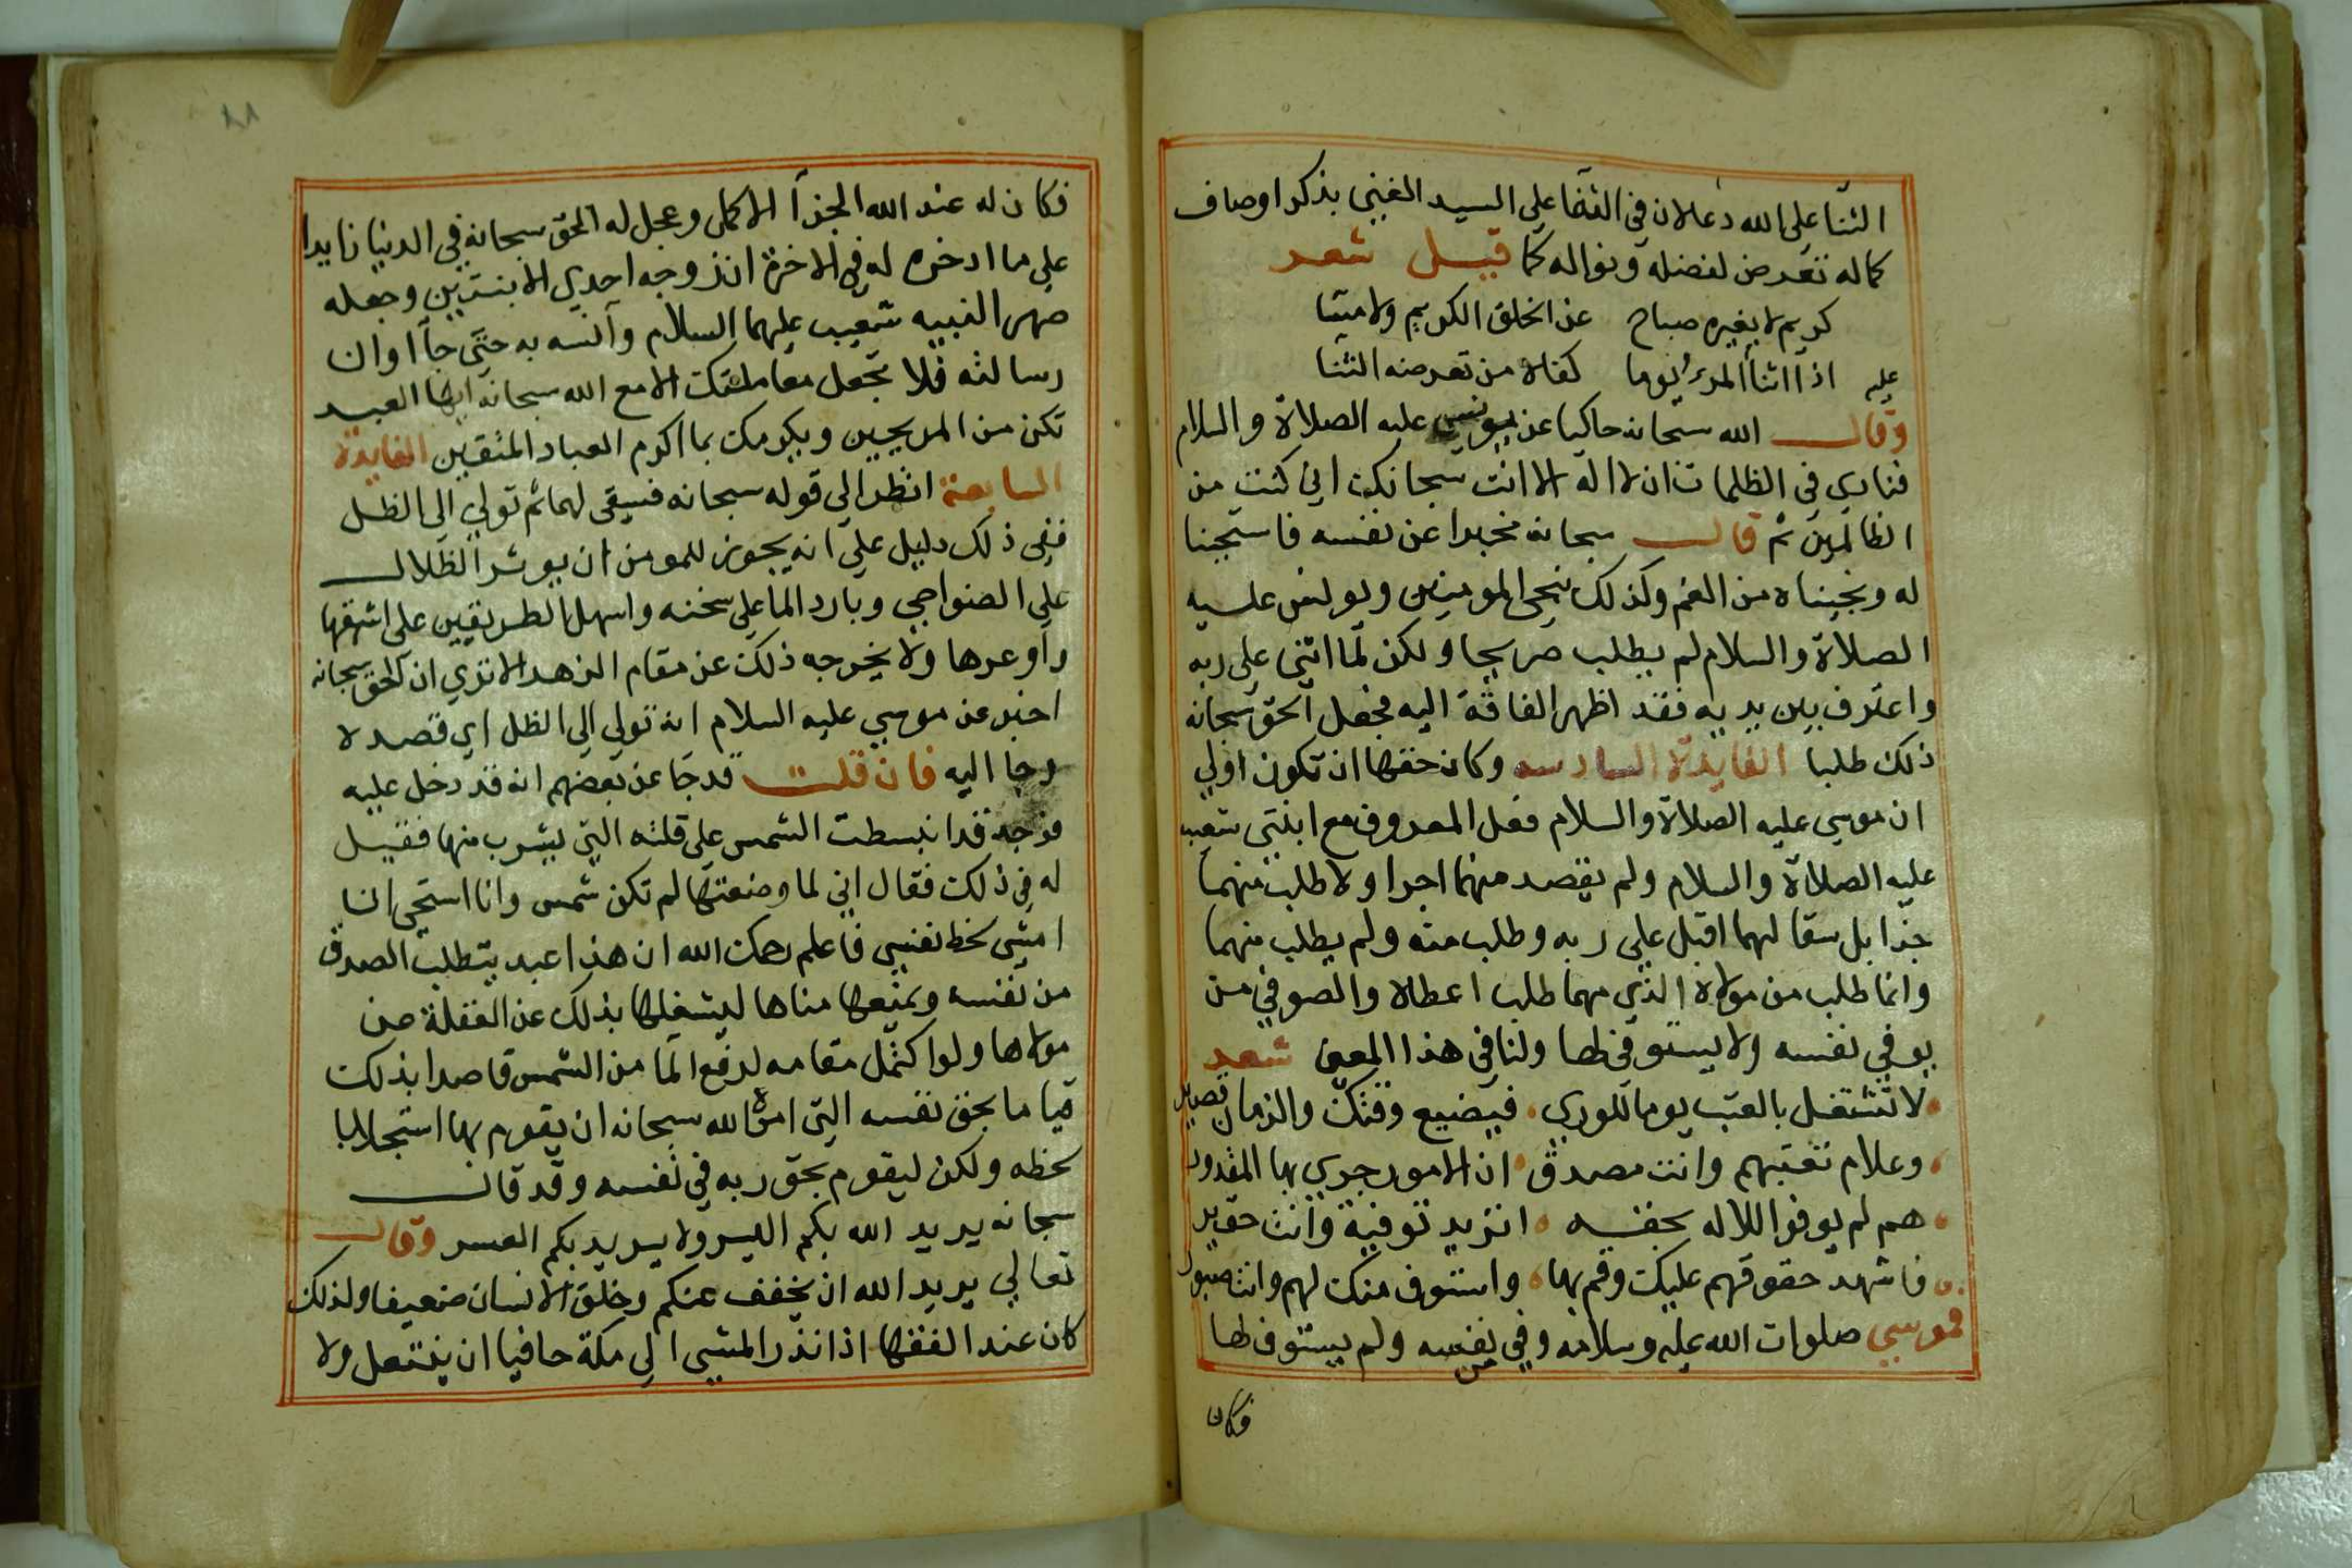 الثنا على الله دعا لان في الثنا على السيد الغني بذكر اوصاف
كماله تعرض لفضله ونواله كما قيل شعر
كريم لا يغيره صباح عن الخلق الكريم ولا مسا
اذا اثنا عليه المرء يوما كفاه من تعرضه الثنا
وقال الله سبحانه حاكيا عن يونس عليه الصلاة والسلام
فنادى في الظلمات ان لا اله الا انت سبحانك اني كنت من
الظالمين ثم قال سبحانه مخبرا عن نفسه فاستجبنا
له ونجيناه من الغم وكذلك ننجي المومنين ويونس عليه
الصلاة والسلام لم يطلب صريحا ولكن لما اثنى على ربه
واعترف بين يديه فقد اظهر الفاقة اليه فجعل الحق سبحانه
ذلك طلبا الفايدة السادسه وكان حقها ان تكون اولي
ان موسي عليه الصلاة والسلام فعل المعروف مع ابنتي شعيب
عليه الصلاة والسلام ولم يقصد منهما اجرا ولا طلب منهما
جزا بل سقا لهما اقبل علي ربه وطلب منه ولم يطلب منهما
وانما طلب من مولاه الذي مهما طلب اعطاه والصوفي من
يوفي نفسه ولا يستوفي لها ولنا في هذا المعنى شعر
لا تشتغل بالعتب يوما للوري فيضيع وقتك والزمان قصير
وعلام تعتبهم وانت مصدق ان الامور جري بها المقدور
هم لم يوفوا للاله بحقه اتريد توفية وانت حقير
فاشهد حقوقهم عليك وقم بها واستوف منك لهم وانت صبور
فموسي صلوات الله عليه وسلامه وفي من نفسه ولم يستوف لها
فكان
فكان له عند الله الجزآ الاكمل وعجل له الحق سبحانه في الدنيا زايدا
على ما ادخره له في الاخرة ان زوجه احدي الابنتين وجعله
صهرا لنبيه شعيب عليهما السلام وآنسه به حتى جآ اوان
رسالته فلا تجعل معاملتك الا مع الله سبحانه ايها العبد
تكن من المربحين ويكرمك بما اكرم العباد المتقين الفايدة
السابعة انظر الي قوله سبحانه فسقى لهما ثم تولي الى الظل
ففي ذلك دليل على انه يجوز للمومن ان يوثر الظلال
على الضواحي وبارد الما على سخنه واسهل الطريقين على اشقها
واوعرها ولا يخرجه ذلك عن مقام الزهد الا تري ان الحق سبحانه
اخبر عن موسي عليه السلام انه تولي الي الظل اي قصده لا
وجا اليه فان قلت قد جا عن بعضهم انه قد دخل عليه
فوجد قد انبسطت الشمس على قلته التي يشرب منها فقيل
له في ذلك فقال اني لما وضعتها لم تكن شمس وانا استحي ان
امشي لحظ نفسي فاعلم رحمك الله ان هذا عبد يتطلب الصدق
من نفسه ويمنعها مناها ليشغلها بذلك عن الغفلة عن
مولاها ولو اكتمل مقامه لرفع الما من الشمس قاصدا بذلك
قياما بحق نفسه التي امره الله سبحانه ان يقوم بها استجلابا
لحظه ولكن ليقوم بحق ربه في نفسه وقد قال
سبحانه يريد الله بكم اليسر ولا يريد بكم العسر وقال
تعالي يريد الله ان يخفف عنكم وخلق الانسان ضعيفا ولذلك
كان عند الفقها اذا نذر المشي الي مكة حافيا ان ينتعل ولا